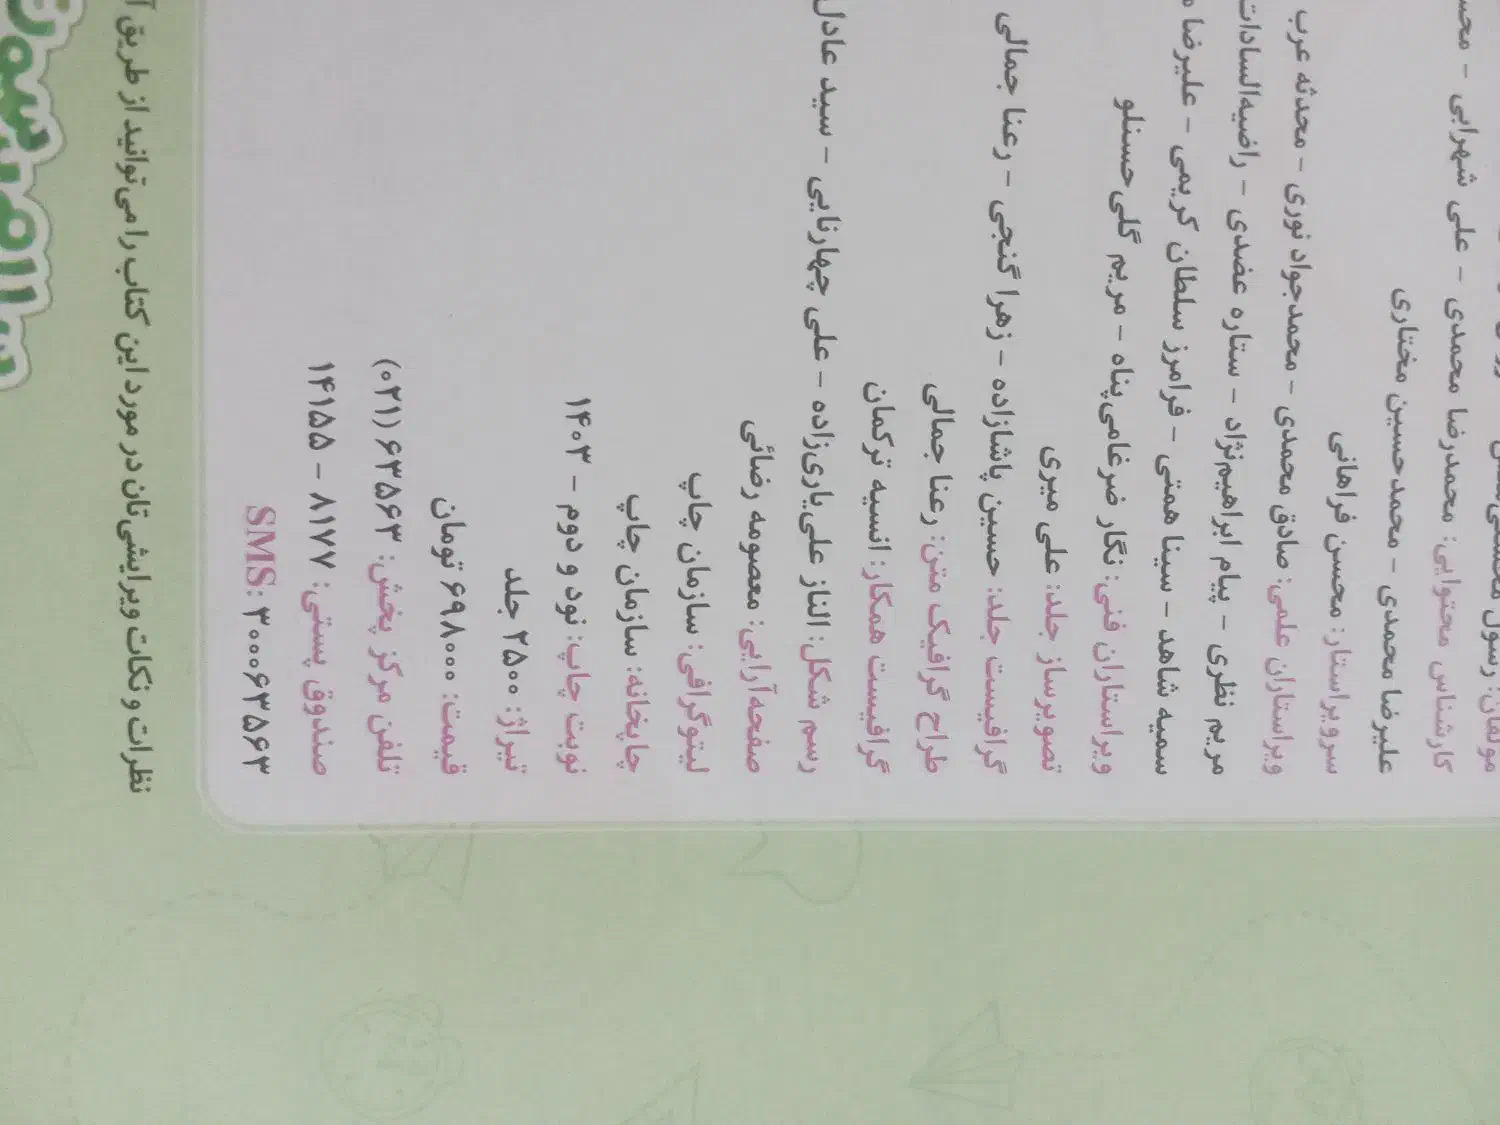 مؤلفان: رسول محسنی‌منش
کارشناس محتوایی: محمدرضا محمدی - علی شهرابی -
علیرضا محمدی - محمدحسین مختاری
سرویراستار: محسن فراهانی
ویراستاران علمی: صادق محمدی - محمدجواد نوری - محدثه عرب
مریم نظری - پیام ابراهیم‌نژاد - ستاره عضدی - راضیه‌السادات
سمیه شاهد - سینا همتی - فرامرز سلطان کریمی - علیرضا
ویراستاران فنی: نگار ضرغامی‌پناه - مریم گلی‌حسنلو
تصویرساز جلد: علی میری
گرافیست جلد: حسین پاشازاده - زهرا گنجی - رعنا جمالی
طراح گرافیک متن: رعنا جمالی
گرافیست همکار: انسیه ترکمان
رسم شکل: الناز علی‌یاری‌زاده - علی چهارتایی - سید عادل
صفحه‌آرایی: معصومه رضائی
لیتوگرافی: سازمان چاپ
چاپخانه: سازمان چاپ
نوبت چاپ: نود و دوم - ۱۴۰۳
تیراژ: ۲۵۰۰ جلد
قیمت: ۶۹۸۰۰۰ تومان
تلفن مرکز پخش: ۶۳۵۶۳ (۰۲۱)
صندوق پستی: ۸۱۷۷ - ۱۴۱۵۵
SMS: ۳۰۰۰۶۳۵۶۳
نظرات و نکات ویرایشی‌تان در مورد این کتاب را می‌توانید از طریق